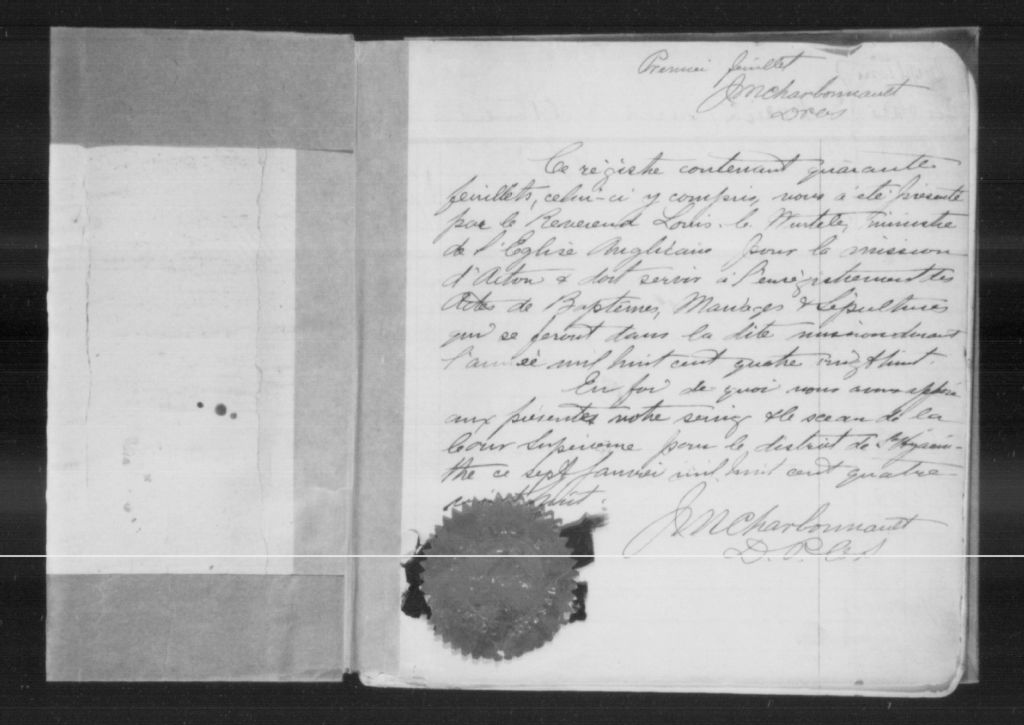 Premier feuillet
JNCharbonneault
Ce régistre contenant quarante
feuillets, celui-ci y compris, nous a été présenté
par le Révérend Louis. C. Wurtele, ministre
de l'Eglise Anglicane pour la mission
d'Acton & doit servir à l'enrégistrement des
Actes de Baptêmes, Mariages & Sépultures
qui se feront dans la dite mission durant
l'année mil huit cent quatre vingt huit.
En foi de quoi nous avons apposé
aux présentes notre seing & le sceau de la
Cour Supérieure pour le district de St Hyacin-
the ce sept Janvier mil huit cent quatre
vingt huit.
JNCharbonneault
D. P. C. S